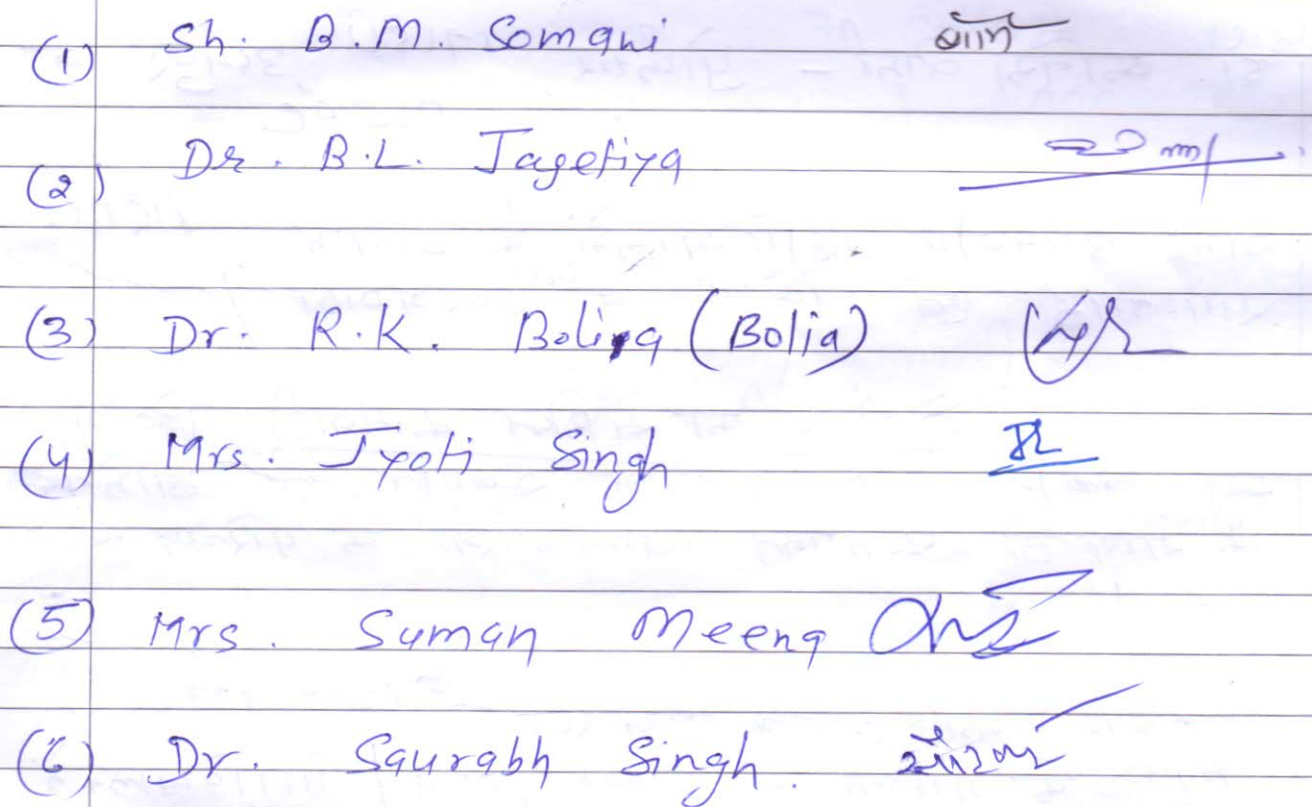 (1) Sh. B.M. Somani
(2) Dr. B.L. Jagetiya
(3) Dr. R.K. Boliya (Bolia)
(4) Mrs. Jyoti Singh
(5) Mrs. Suman Meena
(6) Dr. Saurabh Singh. सौरभ